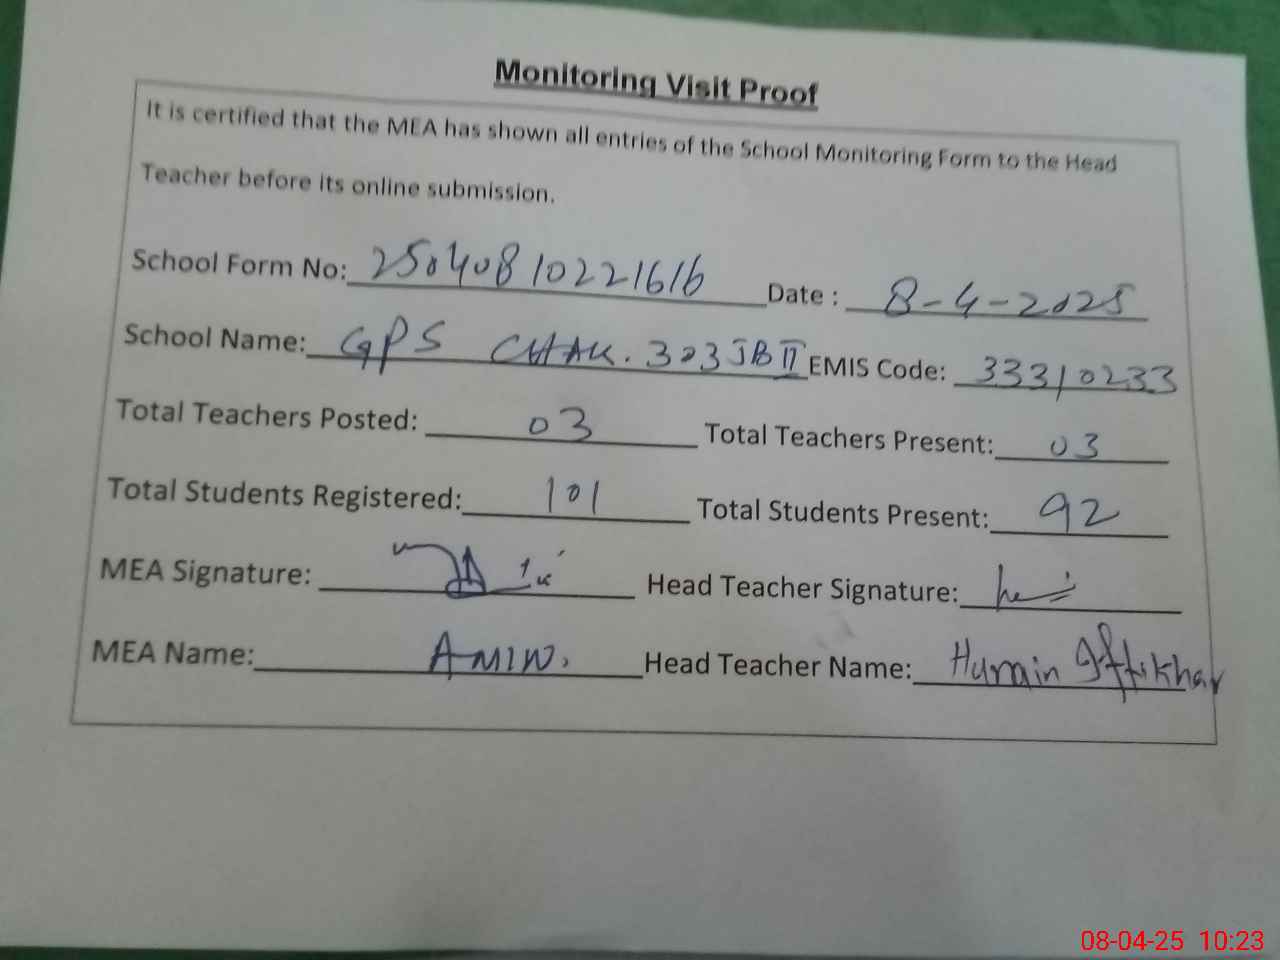 Monitoring Visit Proof
It is certified that the MEA has shown all entries of the School Monitoring Form to the Head
Teacher before its online submission.
School Form No: 25040810221616 Date : 8-4-2025
School Name: GPS CHAK. 303 JB II EMIS Code: 33310233
Total Teachers Posted: 03 Total Teachers Present: 03
Total Students Registered: 101 Total Students Present: 92
MEA Signature: Head Teacher Signature:
MEA Name: AMIN. Head Teacher Name: Humain Iftikhar
08-04-25 10:23